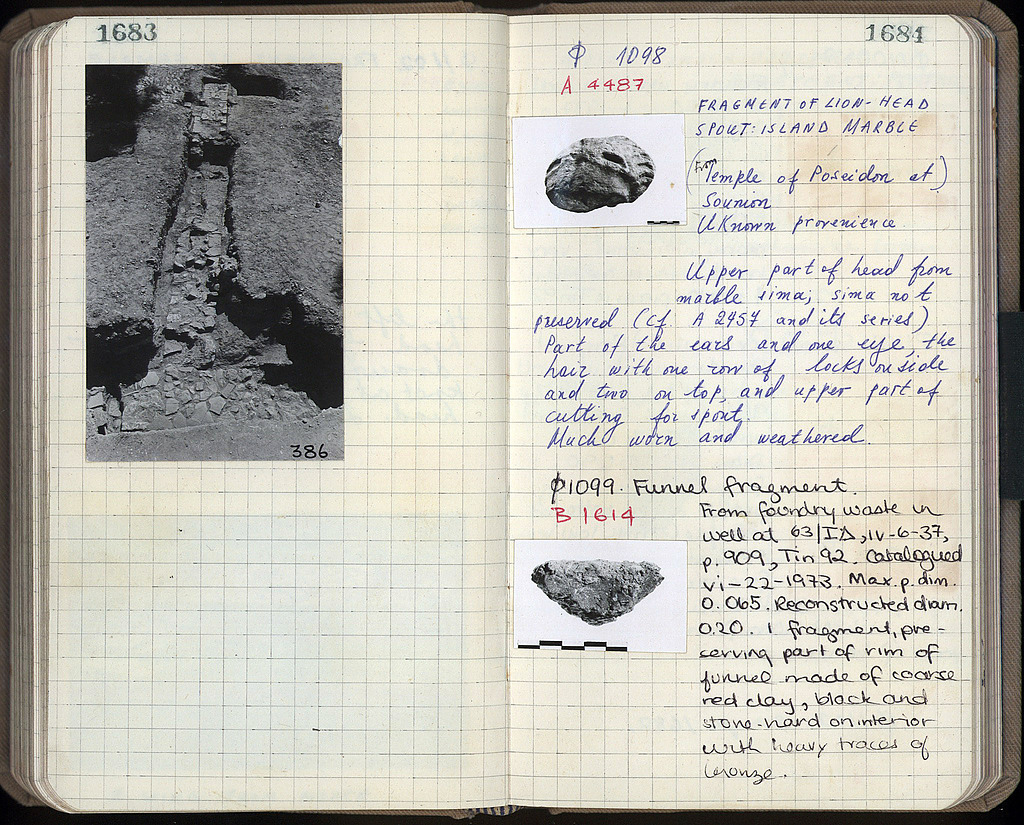 1683
386
1684
ϕ 1098
A 4487
FRAGMENT OF LION-HEAD
SPOUT: ISLAND MARBLE
(From Temple of Poseidon at)
Sounion
UKnown provenience.
Upper part of head from
marble sima; sima not
preserved (cf. A 2457 and its series)
Part of the ears and one eye, the
hair with one row of locks on side
and two on top, and upper part of
cutting for spout.
Much worn and weathered.
ϕ1099. Funnel fragment.
B 1614
From foundry waste in
well at 63/ΙΔ, iv-6-37,
p. 909, Tin 92. Catalogued
vi-22-1973. Max. p. dim.
0.065. Reconstructed diam.
0.20. 1 fragment, pre-
serving part of rim of
funnel made of coarse
red clay, black and
stone-hard on interior
with heavy traces of
bronze.